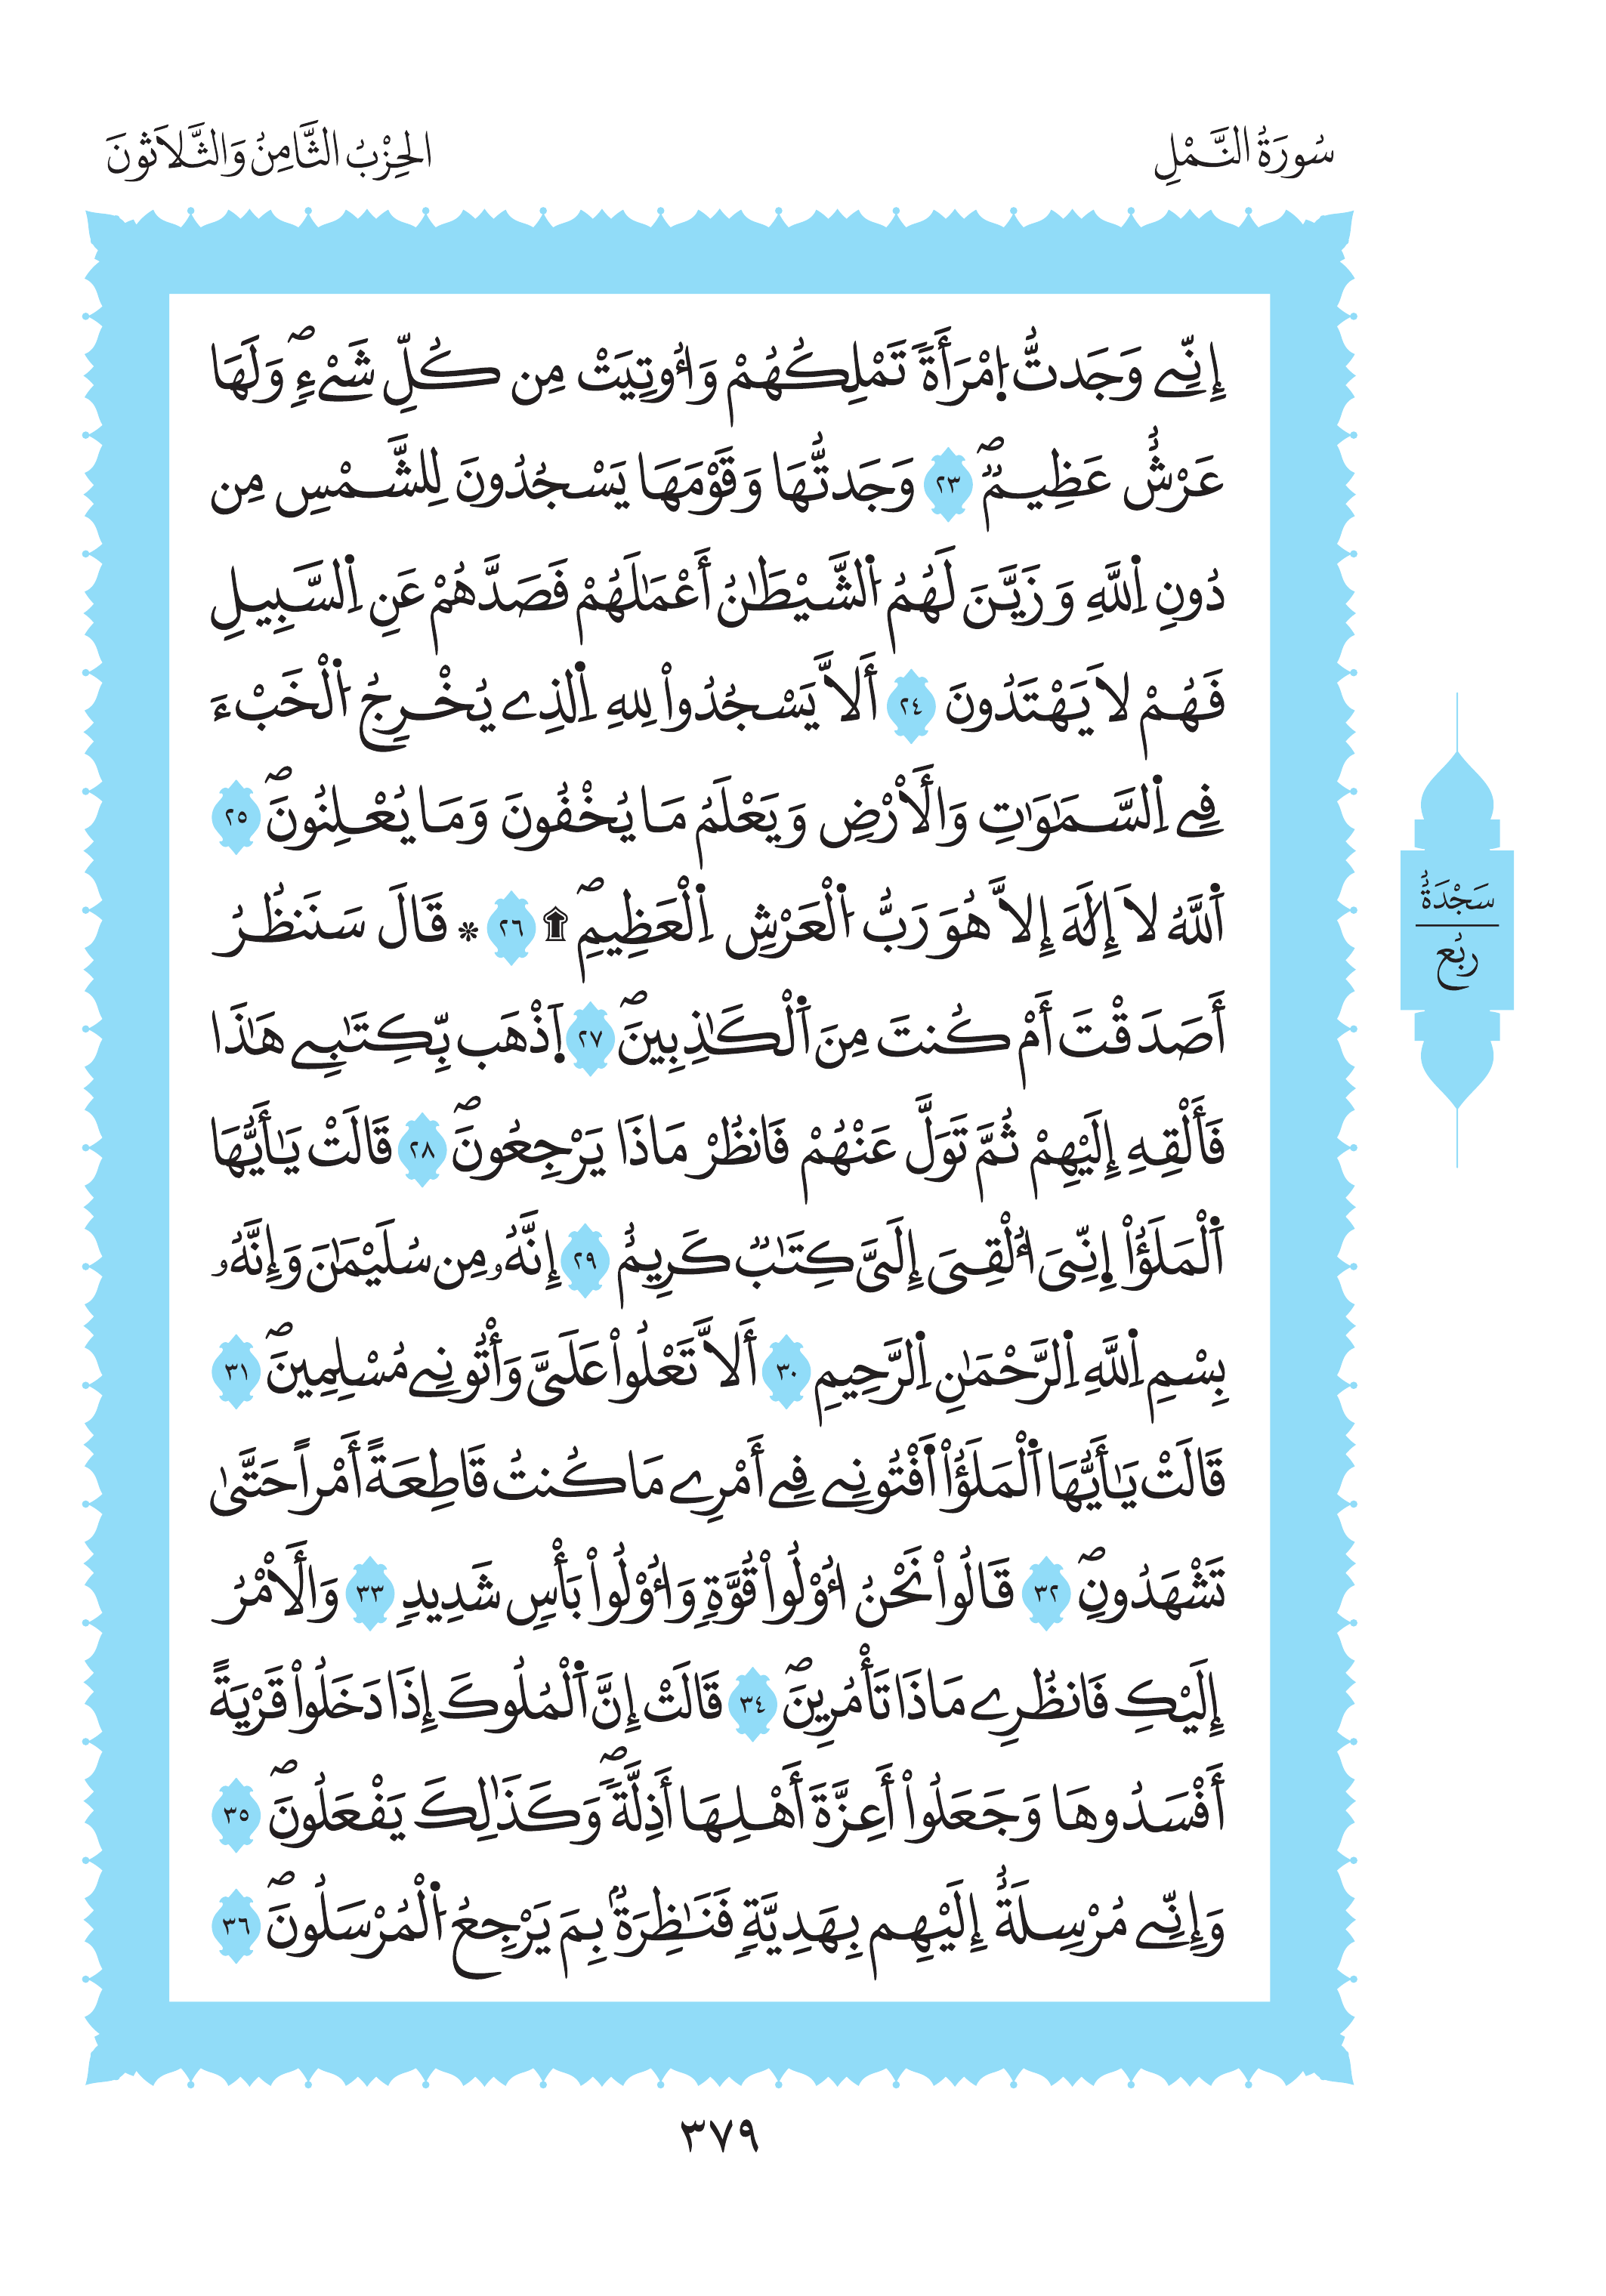 سُورَةُ النَّمْلِ
الحِزْبُ الثَّامِنُ وَالثَّلَاثُونَ
إِنِّے وَجَدتُّ اُ۪مْرَأَةٗ تَمْلِكُهُمْ وَأُوتِيَتْ مِن كُلِّ شَےْءٖۖ وَلَهَا
عَرْشٌ عَظِيمٞۖ ٢٣ وَجَدتُّهَا وَقَوْمَهَا يَسْجُدُونَ لِلشَّمْسِ مِن
دُونِ اِ۬للَّهِ وَزَيَّنَ لَهُمُ اُ۬لشَّيْطَٰنُ أَعْمَٰلَهُمْ فَصَدَّهُمْ عَنِ اِ۬لسَّبِيلِ
فَهُمْ لَا يَهْتَدُونَ ٢٤ أَلَّا يَسْجُدُواْ لِلهِ اِ۬لذِے يُخْرِجُ اُ۬لْخَبْءَ
فِے اِ۬لسَّمَٰوَٰتِ وَالْأَرْضِ وَيَعْلَمُ مَا يُخْفُونَ وَمَا يُعْلِنُونَۖ ٢٥
اَ۬للَّهُ لَا إِلَٰهَ إِلَّا هُوَ رَبُّ اُ۬لْعَرْشِ اِ۬لْعَظِيمِۖ ۩ ٢٦ * قَالَ سَنَنظُرُ
أَصَدَقْتَ أَمْ كُنتَ مِنَ اَ۬لْكَٰذِبِينَۖ ٢٧ اَ۪ذْهَب بِّكِتَٰبِے هَٰذَا
فَأَلْقِهِ إِلَيْهِمْ ثُمَّ تَوَلَّ عَنْهُمْ فَانظُرْ مَاذَا يَرْجِعُونَۖ ٢٨ قَالَتْ يَٰأَيُّهَا
اَ۬لْمَلَؤُاْ اِ۪نِّىَ أُلْقِىَ إِلَىَّ كِتَٰبٞ كَرِيمٌ ٢٩ إِنَّهُۥ مِن سُلَيْمَٰنَ وَإِنَّهُۥ
بِسْمِ اِ۬للَّهِ اِ۬لرَّحْمَٰنِ اِ۬لرَّحِيمِ ٣٠ أَلَّا تَعْلُواْ عَلَىَّ وَأْتُونِے مُسْلِمِينَۖ ٣١
قَالَتْ يَٰأَيُّهَا اَ۬لْمَلَؤُاْ اَ۬فْتُونِے فِے أَمْرِے مَا كُنتُ قَاطِعَةً أَمْراً حَتَّىٰ
تَشْهَدُونِۖ ٣٢ قَالُواْ نَحْنُ أُوْلُواْ قُوَّةٖ وَأُوْلُواْ بَأْسٖ شَدِيدٖ ٣٣ وَالْأَمْرُ
إِلَيْكِ فَانظُرِے مَاذَا تَأْمُرِينَۖ ٣٤ قَالَتْ إِنَّ اَ۬لْمُلُوكَ إِذَا دَخَلُواْ قَرْيَةً
أَفْسَدُوهَا وَجَعَلُواْ أَعِزَّةَ أَهْلِهَا أَذِلَّةٗۖ وَكَذَٰلِكَ يَفْعَلُونَۖ ٣٥
وَإِنِّے مُرْسِلَةٌ إِلَيْهِم بِهَدِيَّةٖ فَنَٰظِرَةُۢ بِمَ يَرْجِعُ اُ۬لْمُرْسَلُونَۖ ٣٦
سَجْدَةٌ
رُبُع
٣٧٩